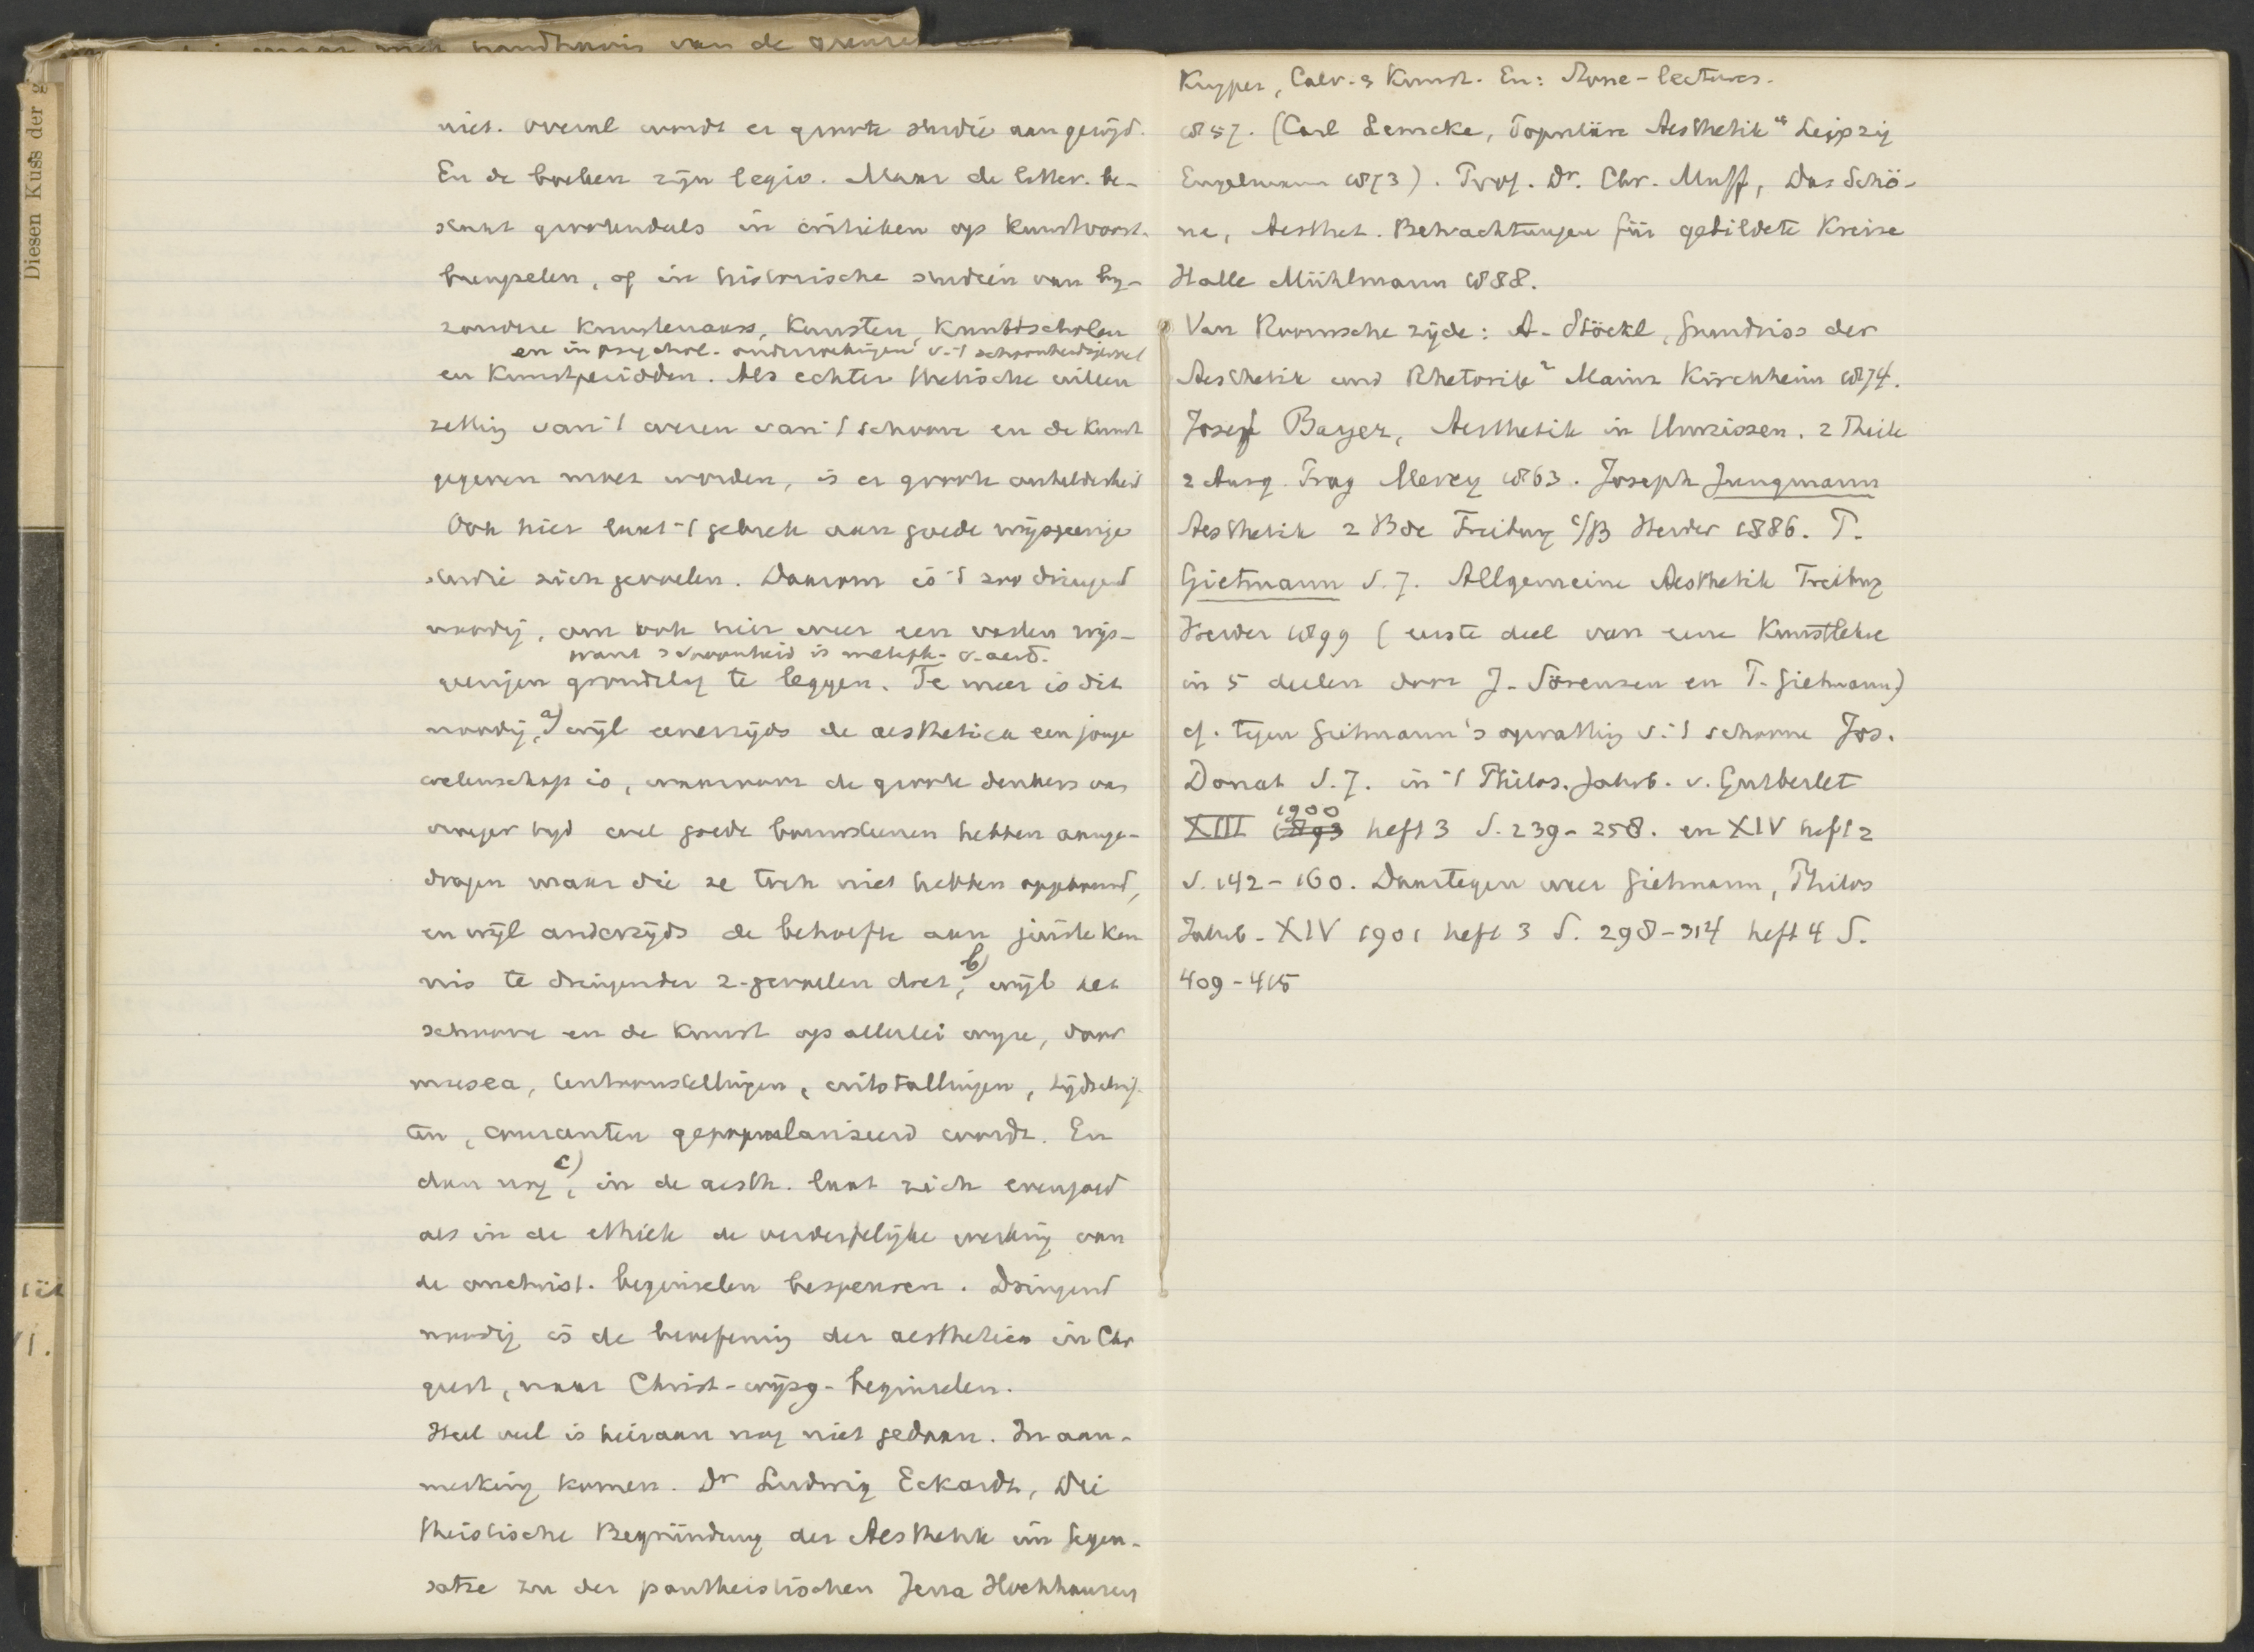 maar met handhavig van de grenzen
Diesen Kuss der g
niet. overal wordt er groote studie aan gewijd.
En de boeken zijn legio. Maar de litter. be-
staat grootendeels in critieken op kunstvoort-
brengselen, of in historische studiën van by-
zondere kunstenaars, kunsten, kunstscholen
en in psychol. onderzoekingen v. 't schoonheidsgevoel
en kunstperioden. Als echter thetische uiteen
zetting van 't wezen van 't schoone en de kunst
gegeven moet worden, is er groote onhelderheid
Ook hier laat 't gebrek aan goede wijsgeerige
studie zich gevoelen. Daarom is 't zoo dringend
noodig, om ook hier weer een vasten wijs-
want schoonheid is metaph. v. aard.
geerigen grondslag te leggen. Te meer is dit
noodig, a) wijl eenerzijds de aesthetica een jonge
wetenschap is, waarvoor de groote denkers van
vroeger tijd wel goede bouwsteenen hebben aange-
dragen maar die ze toch niet hebben opgebouwd,
en wijl anderzijds de behoefte aan juiste ken
nis te dringender z. gevoelen doet, b) wijl het
schoone en de kunst op allerlei wijze, door
musea, tentoonstellingen, uitstallingen, tijdschrif-
ten, couranten gepopulariseerd wordt. En
dan nog c), in de aesth. laat zich evengoed
als in de ethiek de verderfelijke werking van
de onchrist. beginselen bespeuren. Dringend
noodig is de beoefening der aesthetica in Chr
geest, naar Christ-wijsg. beginselen.
Heel veel is hieraan nog niet gedaan. In aan-
merking komen. Dr Ludwig Eckardt, Die
theistische Begründung der Aesthetik im Gegen-
satze zu der pantheistischen Jena Hochhausen
Kuyper, Calv. & Kunst. En: Stone-lectures.
1857. (Carl Lemcke, Populäre Aesthetik 4 Leipzig
Engelmann 1873). Prof. Dr. Chr. Muff, Das Schö-
ne, Aesthet. Betrachtungen für gebildete Kreise
Halle Mühlmann 1888.
Van Roomsche zijde: A. Stöckl, Grundriss der
Aesthetik und Rhetorik 2 Mainz Kirchheim 1874.
Josef Bayer, Aesthetik in Umrissen. 2 Theile
2 Ausg. Prag Mercy 1863. Joseph Jungmann
Aesthetik 2 Bde Freiburg i/B Herder 1886. T.
Gietmann S.J. Allgemeine Aesthetik Freiburg
Herder 1899 (eerste deel van eene Kunstlehre
in 5 deelen door J. Sörensen en T. Gietmann)
cf. tegen Gietmann's opvatting v. 't schoone Jos.
Donat S.J. in 't Philos. Jahrb. v. Gutberlet
XIII 1893 1900 heft 3 S. 239-258. en XIV heft 2
S. 142-160. Daartegen weer Gietmann, Philos
Jahrb. XIV 1901 heft 3 S. 298-314 heft 4 S.
409-415